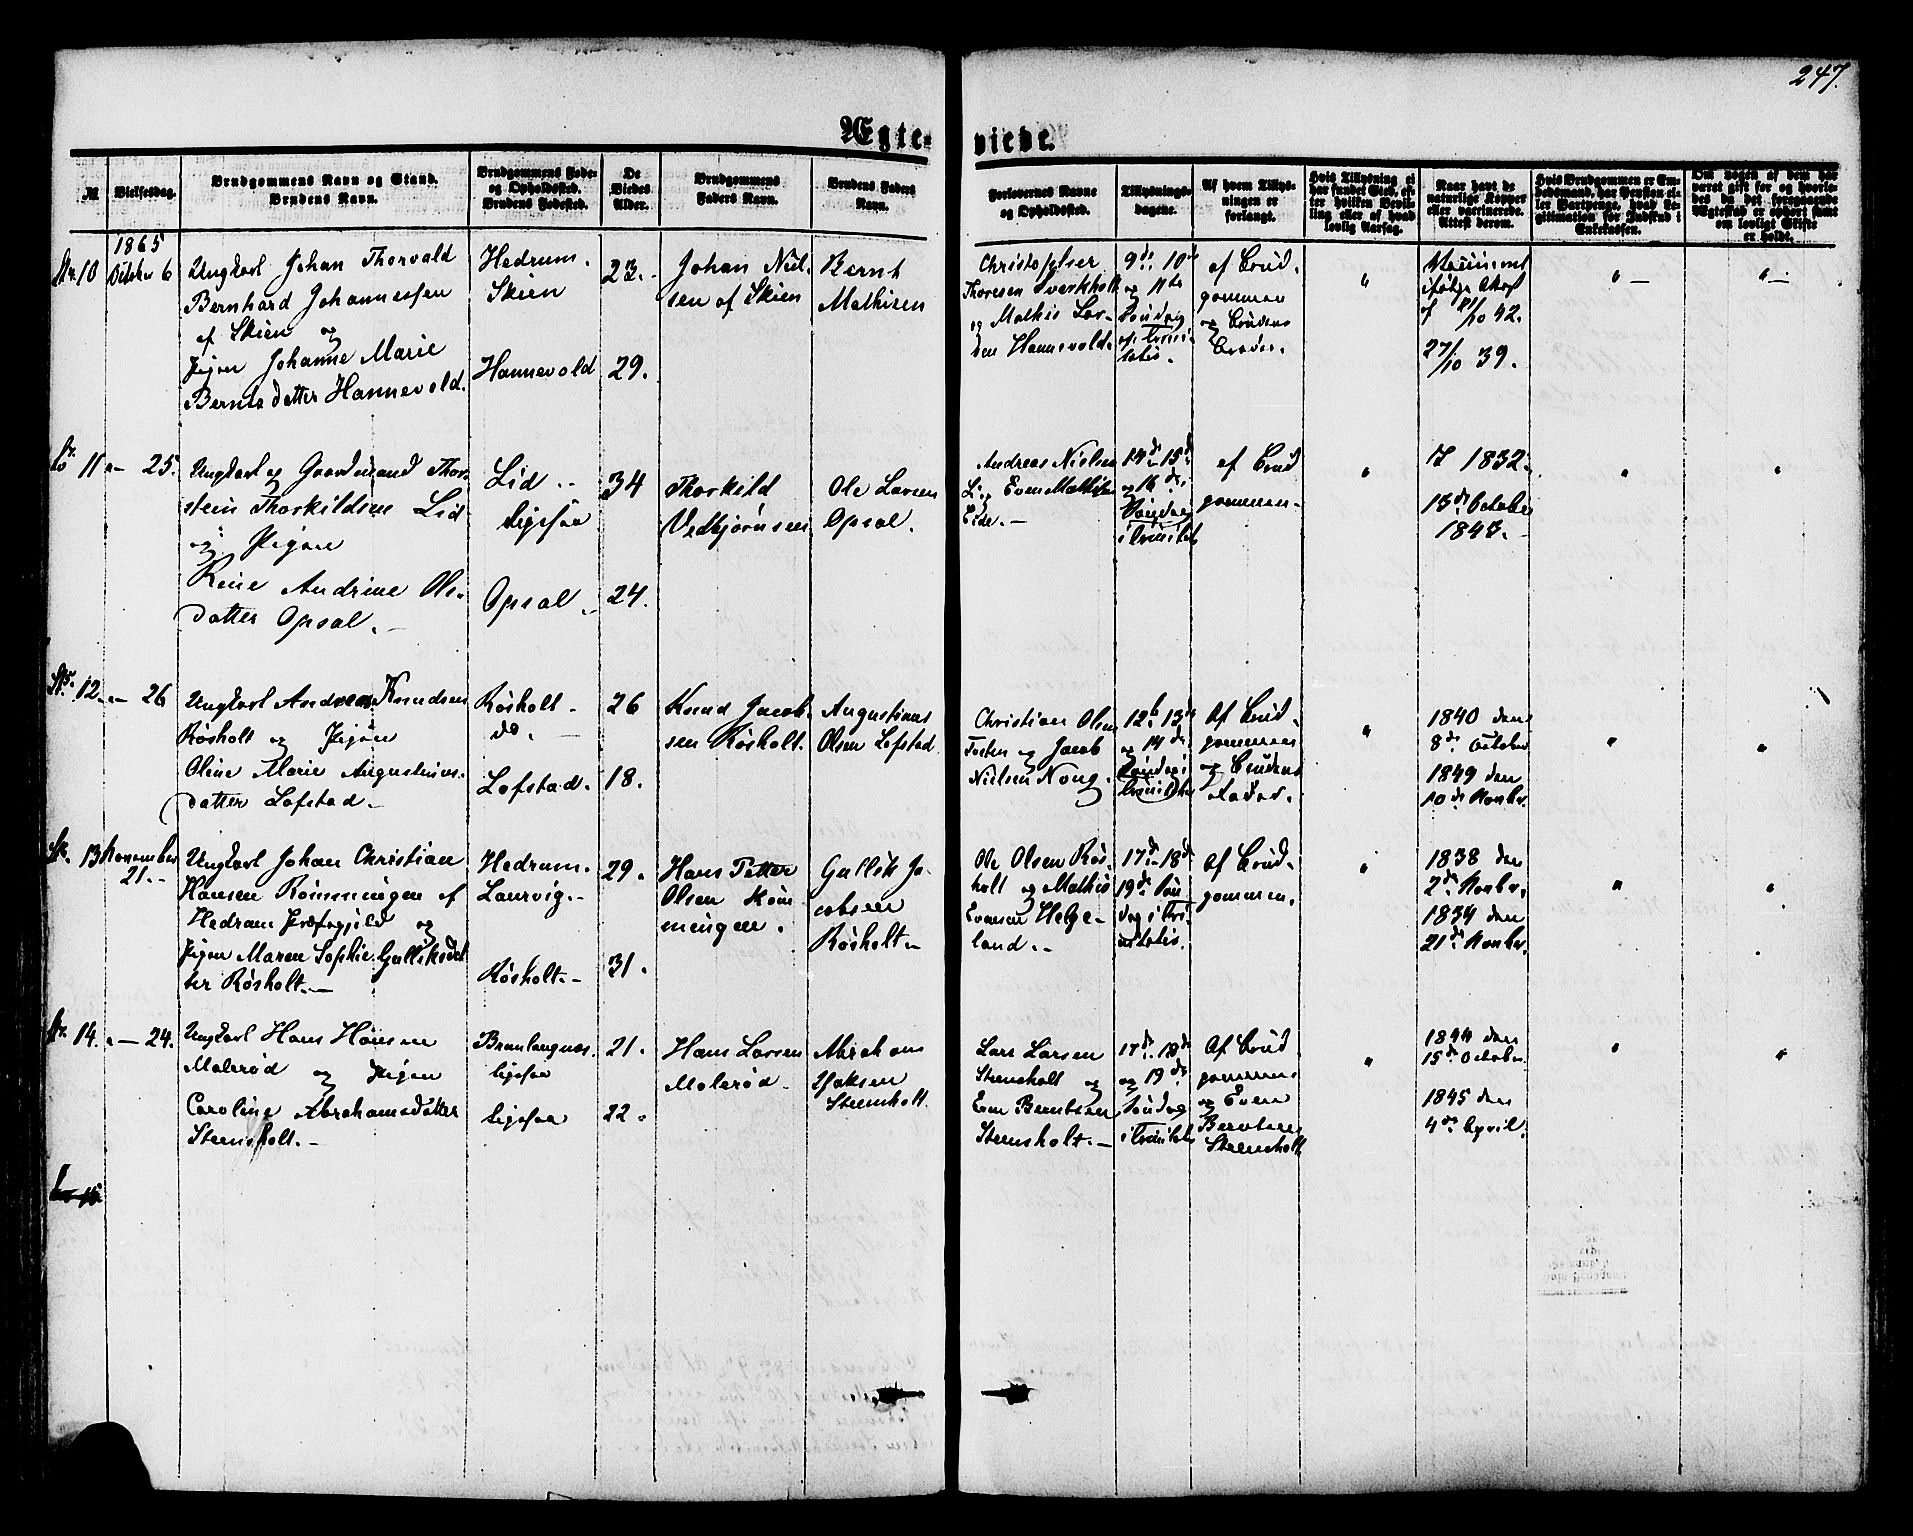 247.
Ægte- viede.
№
Vielsesdag.
Brudgommens Navn og Stand.
Brudens Navn.
Brudgommens Føde-
og Opholdssted.
Brudens Fødested.
De
Viedes
Alder.
Brudgommens
Faders Navn.
Brudens Faders
Navn.
Forlovernes Navne
og Opholdssted.
Tillysnings-
dagene.
Af hvem Tillys-
ningen er
forlangt.
Hvis Tillysning ei
har fundet Sted, ef-
ter hvilken Bevil-
ling eller af hvad
lovlig Aarsag.
Naar havt de
naturlige Kopper
eller vaccinerede.
Attest derom.
Hvis Brudgommen er Em-
bedsmand, har Pension el-
ler Vartpenge, hvad Le-
gitimation for Indskud i
Enkekassen.
Om nogen af dem har
været gift før og hvorle-
des da det foregaaende
Ægteskab er ophørt samt
om lovligt Skifte
er holdt.
1865
No. 10 Oktober 6
Ungkarl Johan Thorvald
Bernhard Johannessen
af Skien og
Pigen Johanne Marie
Berntsdatter Hannevold.
Hedrum.
Skien
Hannevold
23.
29.
Johan Niel-
sen af Skien
Bernt
Mathisen
Christopher
Thoresen Sverkholt
og Mathis Lar-
sen Hannevold.
9de 10de
og 11te
Søndag
ef. Trini-
tatis.
af Brud-
gommen
og Brudens
Broder.
"
ifølge Attest
af 42.
27/10 39.
" —
" —
11 " — 25.
Ungkarl og Gaardmand Thor-
stein Thorkildsen Lid
og Pigen
Andrine Ols-
datter Opsal. —
Lid
ligesaa
Opsal.
34
24.
Thorkild
Vedbjørnsen
Ole Larsen
Opsal.
Andreas Nielsen
Li og Even Mathisen
Eide. —
14de 15de
og 16de
Søndag
i Trinitat
af Brud
gommen.
"
17 1832.
13de October
1847.
"
"
12. " — 26
Ungkarl Andreas Knudsen
Røsholt og Pigen
Oline Marie Augustinus-
datter Lofstad. —
Røsholt
do. —
Lofstad.
26
18.
Knud Jacob-
sen Røsholt.
Augustinus
Olsen Lofstad
Christian Olsen
og Jacob
Nielsen
12te 13de
og 14de
Søndag i
Trinitatis
Af Brud-
gommen
og Brudens
Fader.
"
1840 den
8de October
1849 den
10de Novbr.
"
"
13 November
21. —
Ungkarl Johan Christian
Hansen Rømmingen af
Hedrum Præstegjeld og
Pigen Maren Sophie Galliksdat
ter Røsholt. —
Hedrum.
Laurvig.
Røsholt. —
29.
31.
Hans Petter
Olsen Røm-
mingen.
Gullik Ja-
cobsen
Røsholt. —
Ole Olsen Røs-
holt og Mathis
Evensen Helge-
land. —
17de 18de
19de Søn
dag i Tri
nitatis.
Af Brud-
gommen.
"
1838 den
2de Novbr.
1834 den
21de Novbr.
"
"
14. " — 24.
Ungkarl Hans Hansen
Molerød og Pigen
Caroline Abrahamsdatter
Steensholt. —
Brunlaugnæs.
ligesaa
ligesaa
21.
22.
Hans Larsen
Molerød.
Abraham
Isaksen
Steensholt.
Lars Larsen
Steensholt og
Even Berntsen
Steensholt. —
17de 18de
og 19de
Søndag
i Trinitatis
Af Brud
gommen
og Even
Berntsen
Steensholt
"
1844 den
15de October.
1845 den
4de April.
"
"